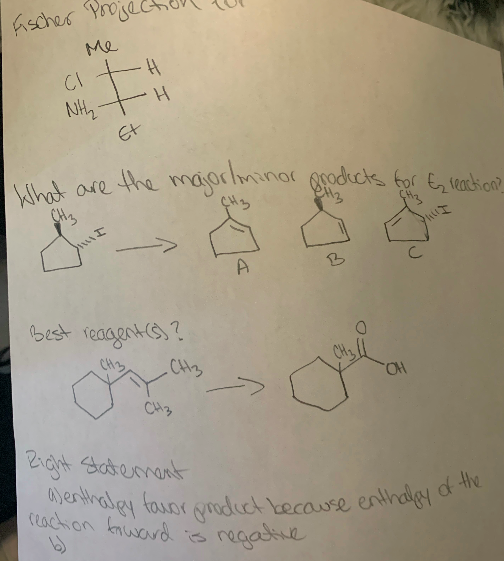 Fischer Projection for
Me
Cl H
NH₂ H
Et
What are the major/minor products for E₂ reaction?
CH₃ I CH₃ CH₃ CH₃ I
A B C
Best reagent(s)?
CH₃ CH₃ CH₃ O
CH₃ OH
Right Statement
a) enthalpy favor product because enthalpy of the
reaction forward is negative
b)